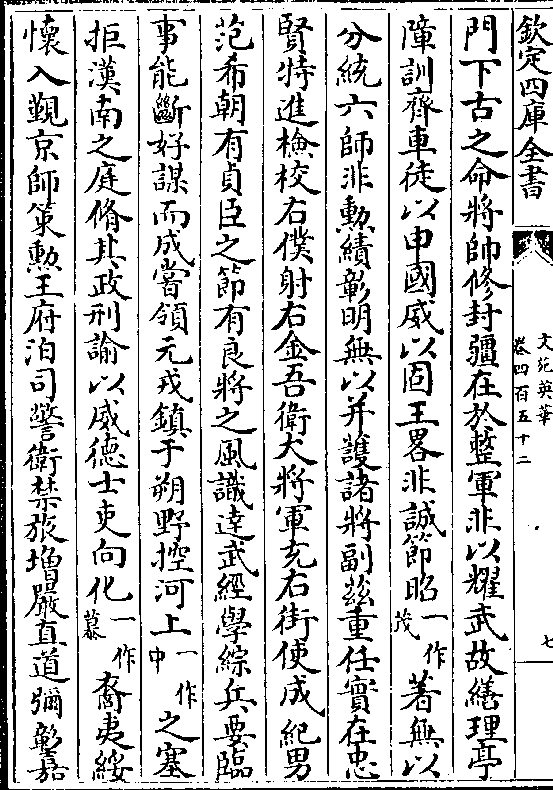 欽定四庫全書
文苑英華
卷四百五十二
七
門下古之命將帥修封疆在於整軍非以耀武故繕理亭
障訓齊車徒以申國威以固王畧非誠節昭一作茂著無以
分統六師非勲績彰明無以并護諸將副兹重任實在忠
賢特進檢校右僕射右金吾衛大將軍充右街使成紀男
范希朝有貞臣之節有良將之風識逹武經學綜兵要臨
事能斷好謀而成嘗領元戎鎮于朔野控河上一作中之塞
拒漢南之庭脩其政刑諭以威德士吏向化一作慕裔夷綏
懷入觀京師策勲王府洎司警衛禁旅增嚴直道彌彰嘉